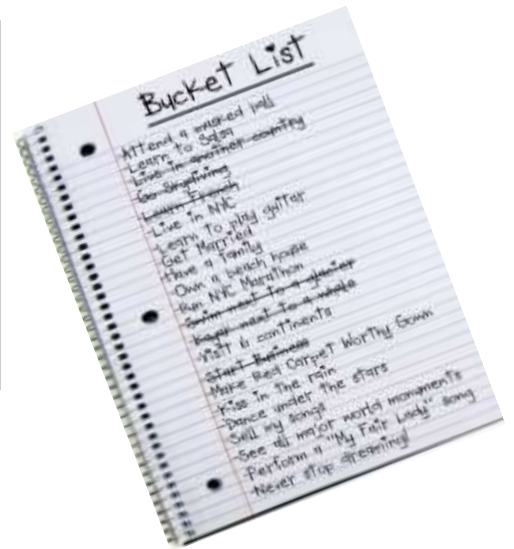 Bucket List
Attend a masked ball
Learn to Salsa
Live in another country
Go Skydiving
Learn French
Live in NYC
Learn to play guitar
Get Married
Have a family
Own a beach house
Run NYC Marathon
Swim next to a glacier
next to a whale
Visit 6 continents
Start Business
Make Red Carpet Worthy Gown
Kiss in the rain
Dance under the stars
Sell my songs
See all major world monuments
Perform a "My Fair Lady" song
Never stop dreaming!